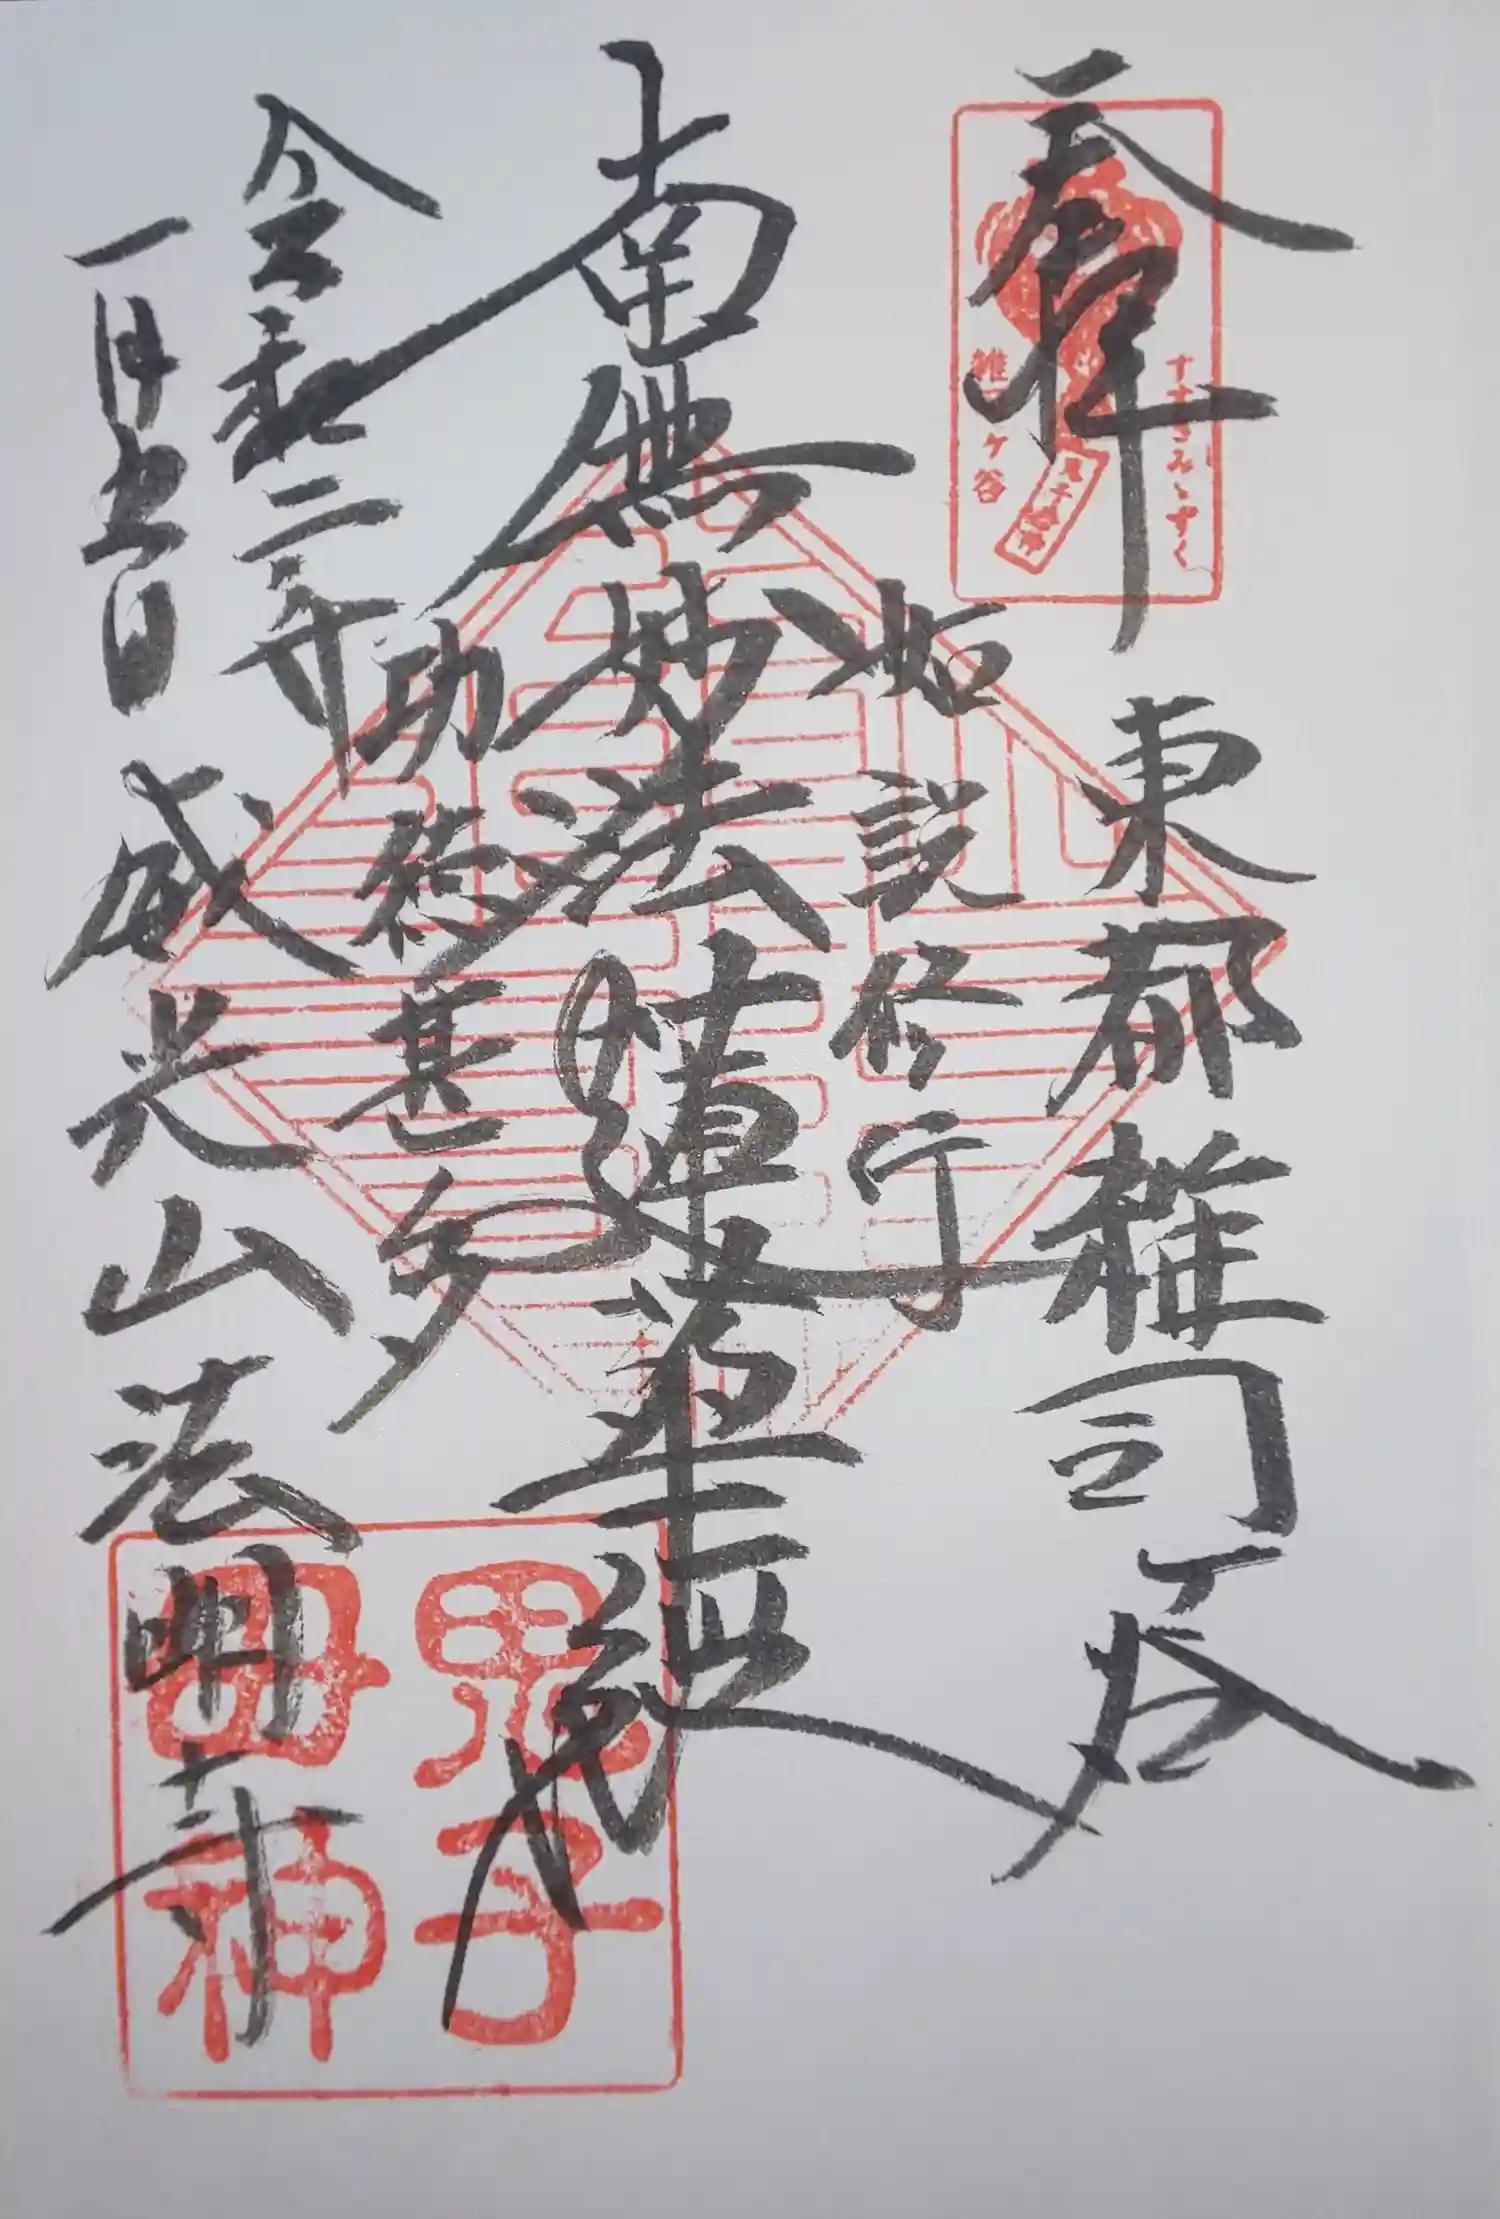 奉拝
すすきみゝずく
雑司ヶ谷
東都雑司ヶ谷
如説修行
南無妙法蓮華経
功徳甚多
令和二年
一月五日
威光山法明寺
鬼子
母神